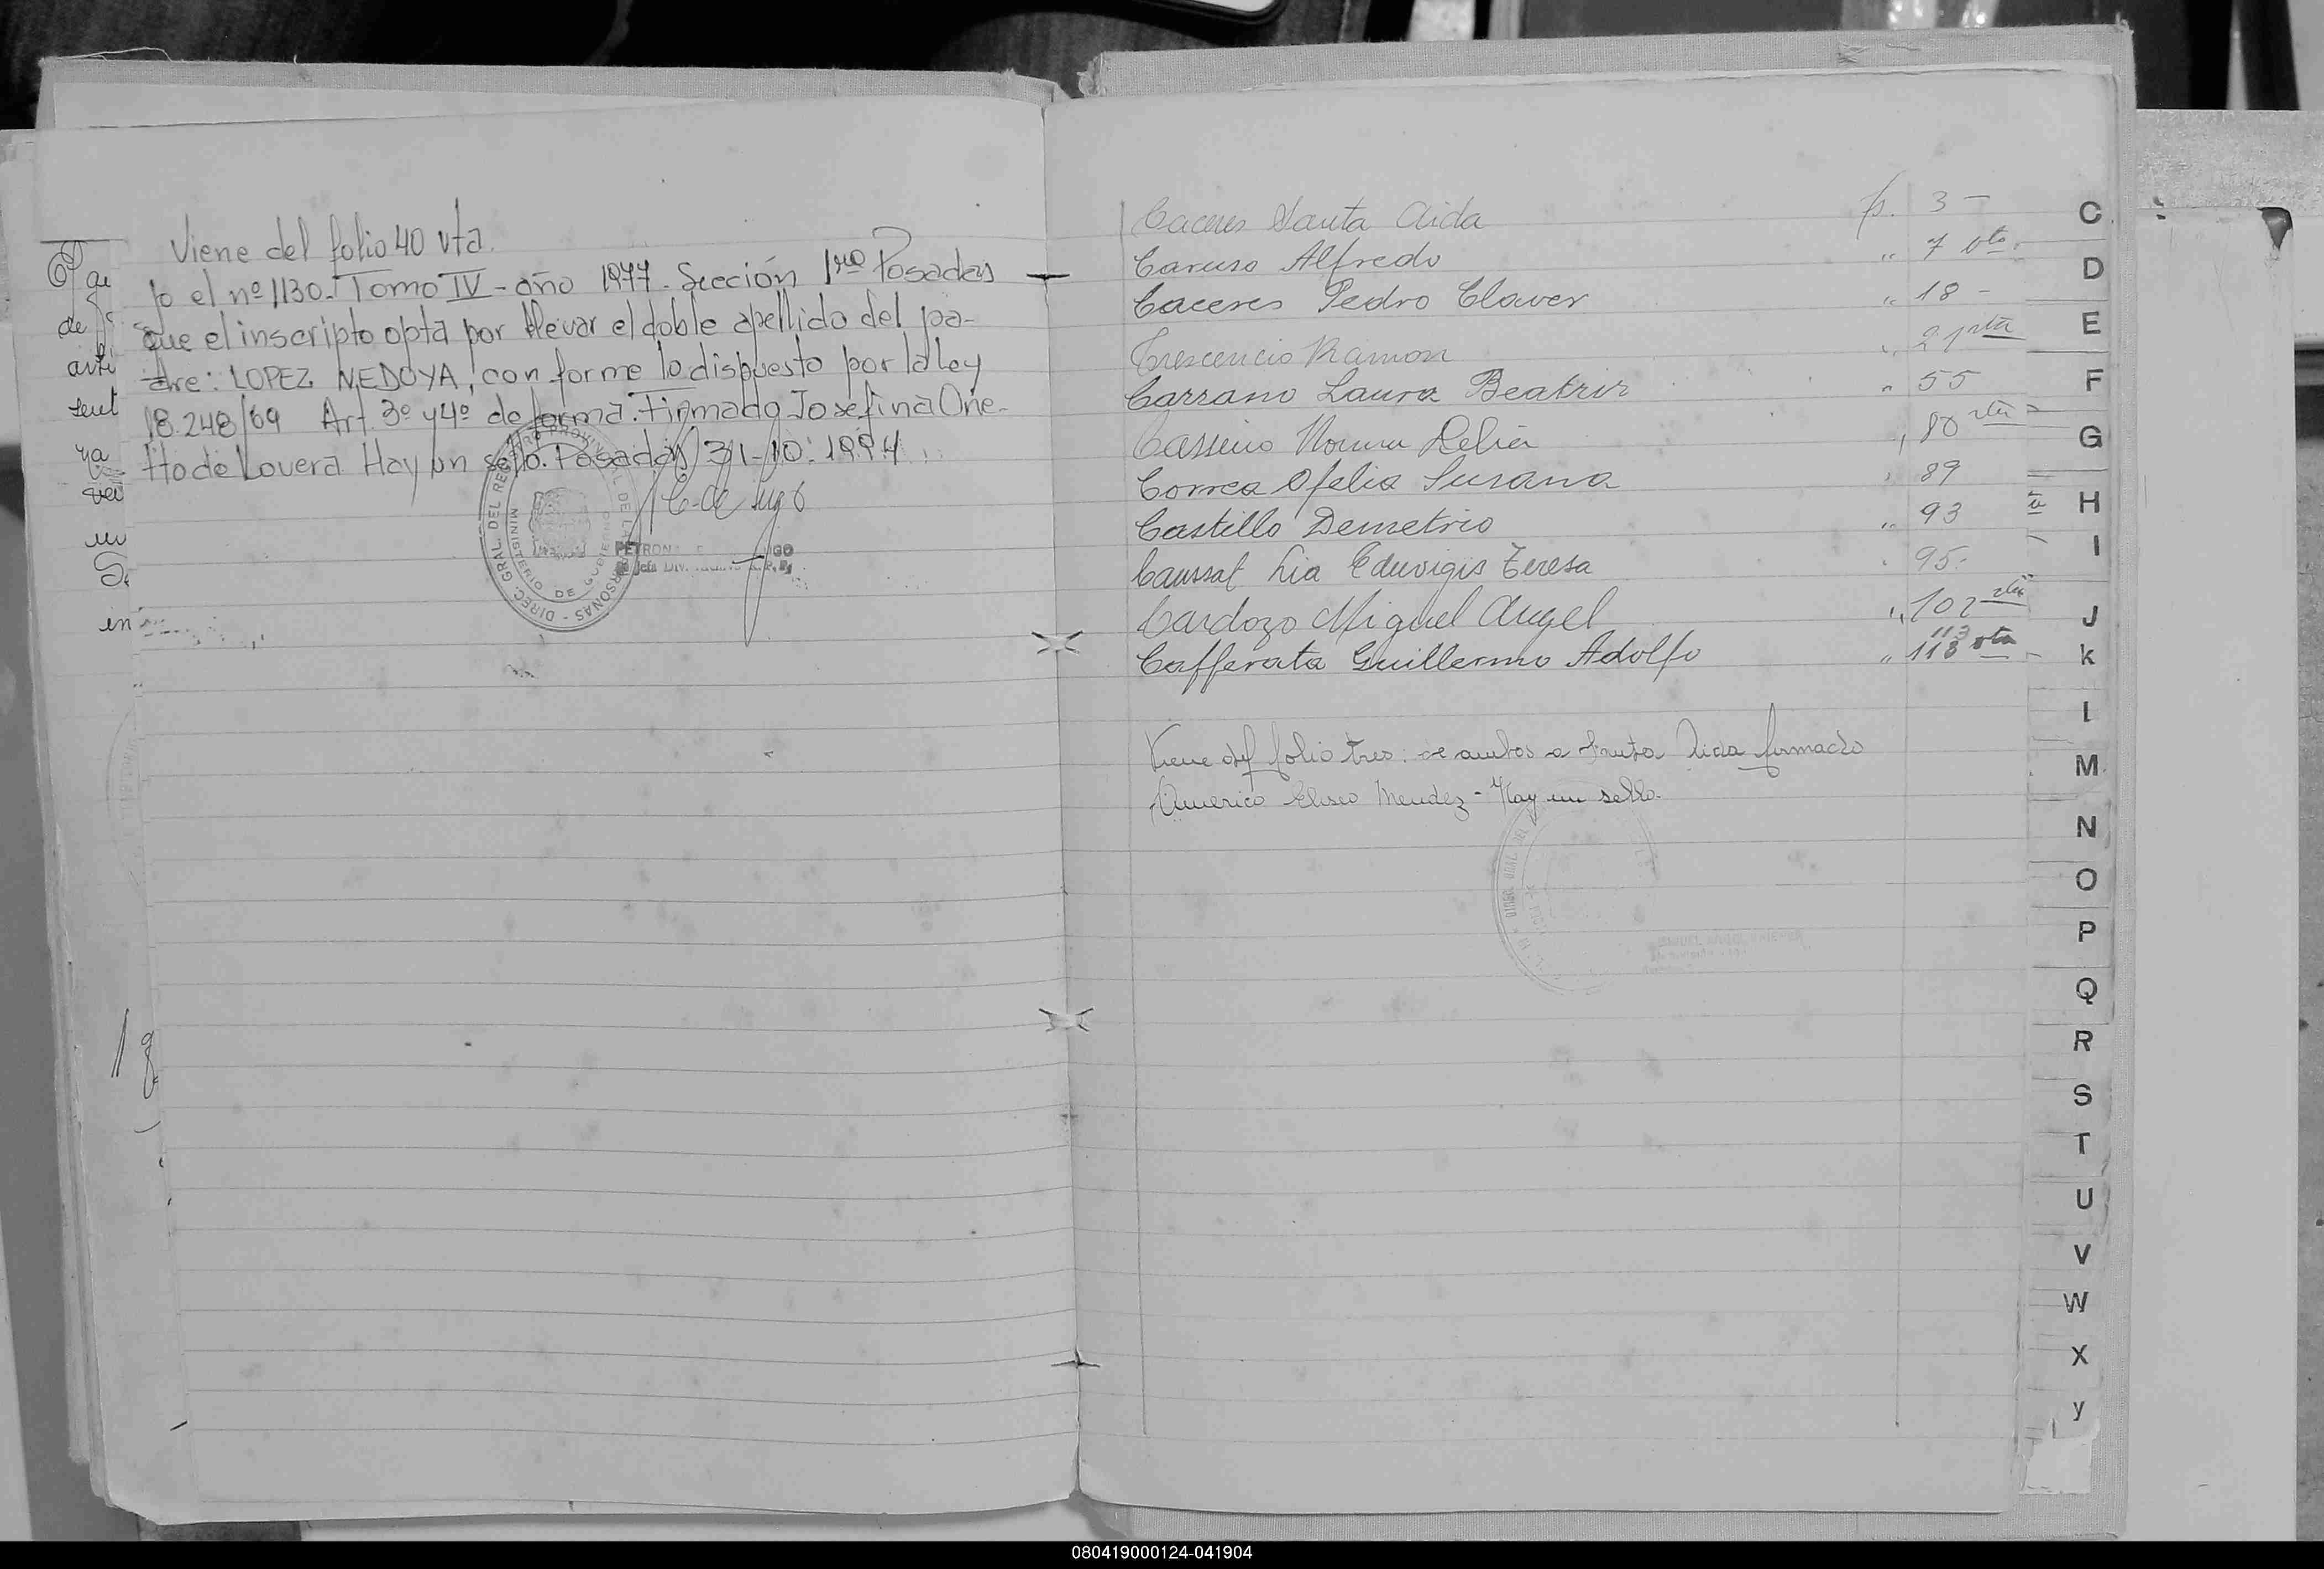 Viene del folio 40 vta.
jo el nº 1130. Tomo IV - año 1977. Sección 1ra Posadas
que el inscripto opta por llevar el doble apellido del pa-
dre: LOPEZ NEDOYA, conforme lo dispuesto por la ley
18.248/69 Art. 3º y 4º de forma. Firmado Josefina One-
tto de Lovera Hay un sello. Posadas 31-10-1994
DIREC. GRAL. DEL REGISTRO PROVINCIAL DE LAS PERSONAS
MINISTERIO DE GOBIERNO
PETRONA
Jefa
de
en
Caceres Santa Aida f. 3 -
Caruso Alfredo " 7 vta.
Caceres Pedro Claver " 18 -
Crescencio Ramon " 21 vta
Carrano Laura Beatriz " 55
Casseno Norma Delia " 80 vta
Correa Ofelia Susana " 89
Castillo Demetrio " 93
Caussat Lia Eduvigis Teresa " 95.
Cardozo Miguel Angel " 102 vta
Cafferata Guillermo Adolfo " 113 vta
113
Viene del folio tres: de ambos a Santa Aida firmado
Americo Eliseo Mendez - Hay un sello.
C
D
E
F
G
H
I
J
k
l
M
N
O
P
Q
R
S
T
U
V
W
X
y
080419000124-041904